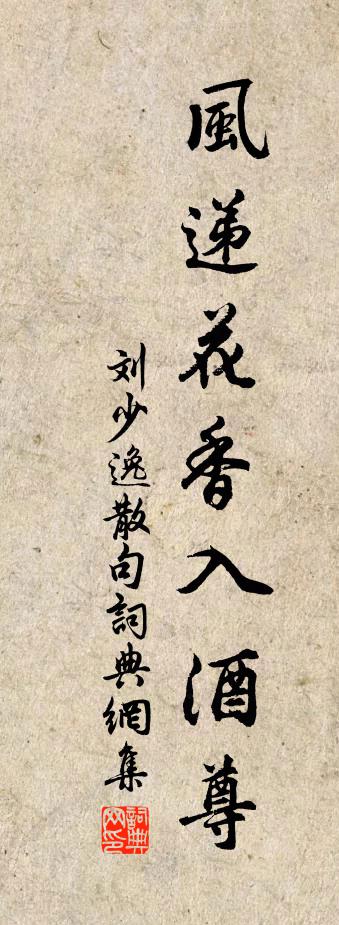 風递花香入酒尊
刘少逸散句詞典網集
詞典网印